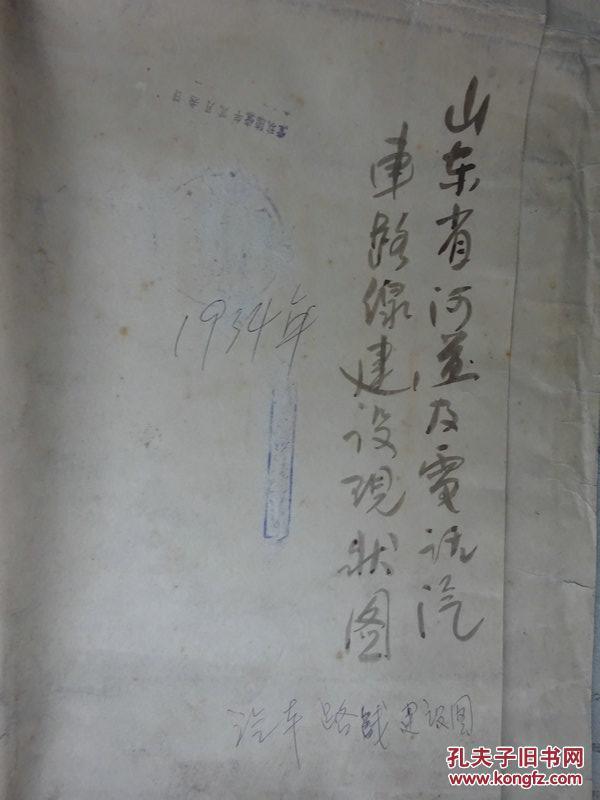 山东省河道及電话汽
車路線建设现狀图
1934年
汽车路线建设图
孔夫子旧书网
www.kongfz.com